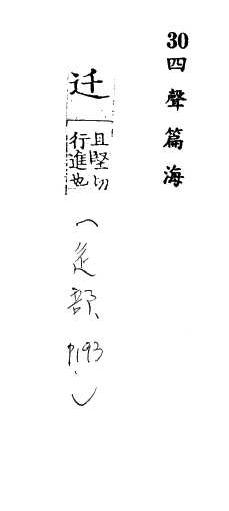 30 四聲篇海
迁
且堅切
行進也
(辵部
P193.)